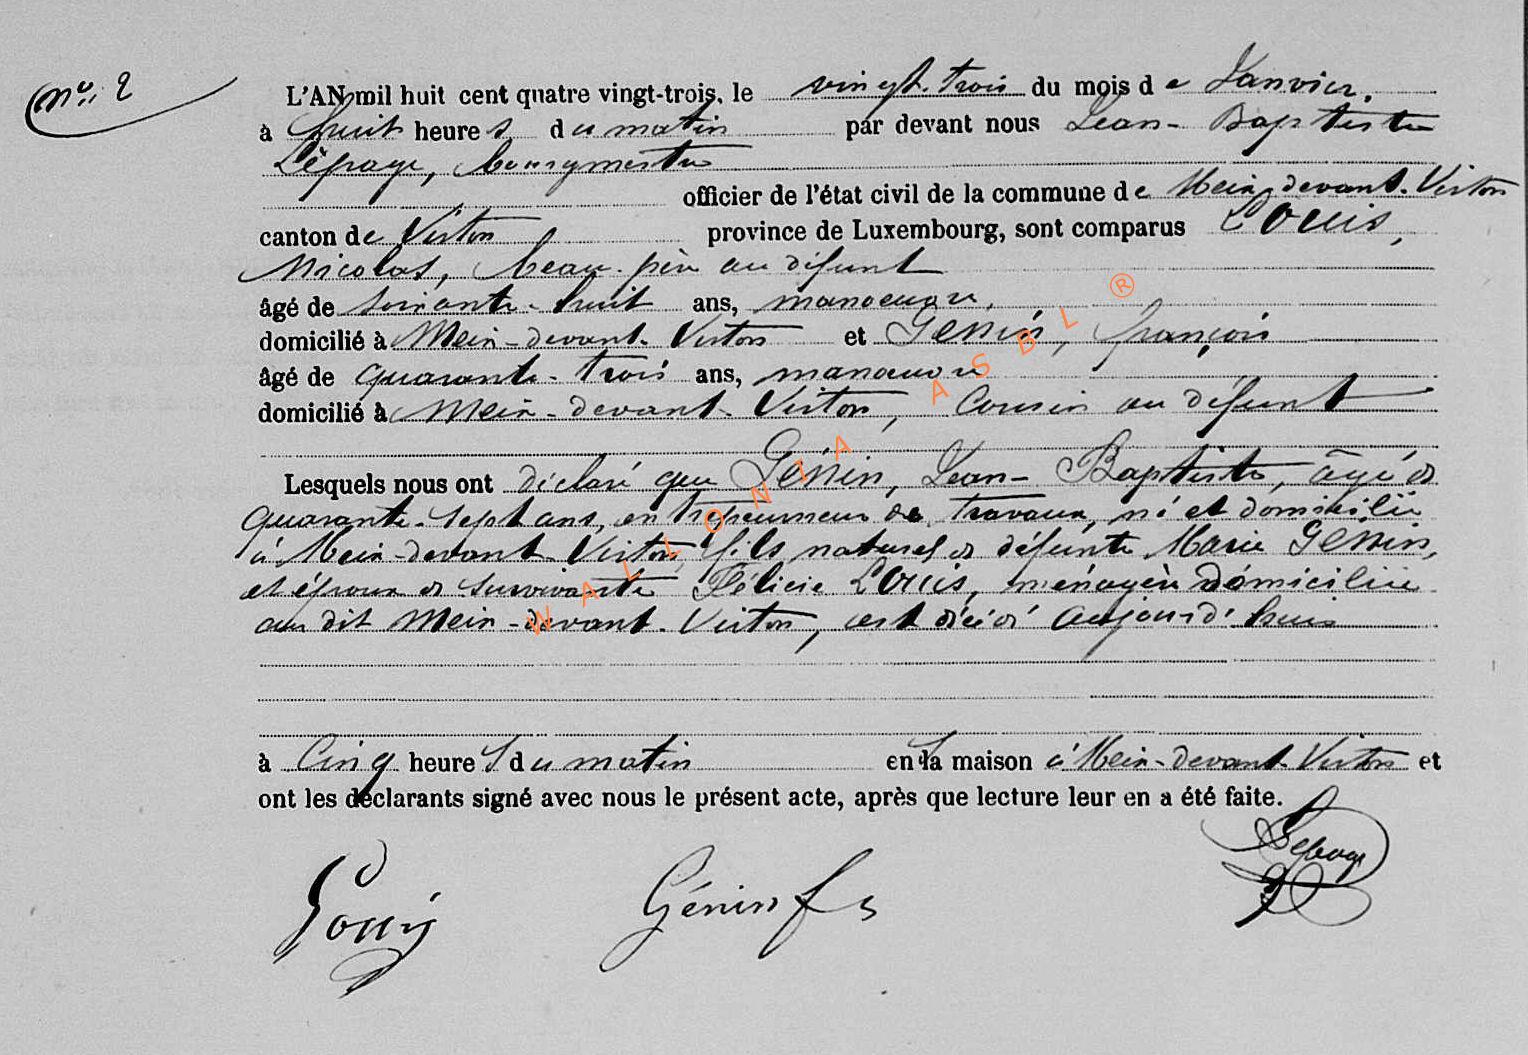 No. 2
L'AN mil huit cent quatre vingt-trois, le vingt-trois du mois de Janvier,
à huit heures du matin par devant nous Jean-Baptiste
Lépage, bourgmestre
officier de l'état civil de la commune de Meix-devant-Virton
canton de Virton province de Luxembourg, sont comparus Louis,
Nicolas, beau-père au défunt
âgé de soixante-huit ans, manoeuvre,
domicilié à Meix-devant-Virton et Génin, françois
âgé de quarante-trois ans, manoeuvre
domicilié à Meix-devant-Virton, Cousin au défunt
Lesquels nous ont déclaré que Génin, Jean-Baptiste, âgé de
quarante-sept ans, entrepreneur de travaux, né et domicilié
à Meix-devant-Virton, fils naturel de défunte Marie Génin,
et époux de survivante Félicie Louis, ménagère domiciliée
au dit Meix-devant-Virton, est décédé aujourd'hui
à Cinq heures du matin en sa maison à Meix-devant-Virton et
ont les déclarants signé avec nous le présent acte, après que lecture leur en a été faite.
Louis Génin fs Lepage
WALLONIA ASBL ®